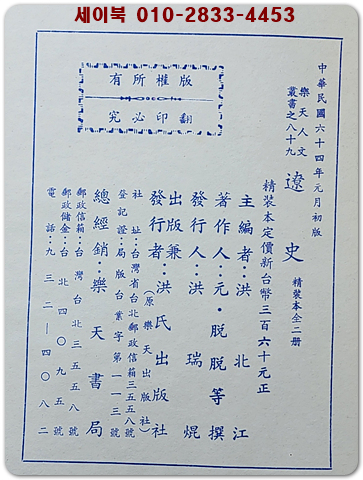 세이북 010-2833-4453
版權所有
翻印必究
中華民國六十四年元月初版
樂天人文叢書之八十九
遼史 精裝本全二册
精裝本定價新台幣三百六十元正
主編者：洪北江
著作人：元．脫脫等撰
發行人：洪瑞焜
出版兼發行者：洪氏出版社
（原樂天出版社）
社址：台灣省台北郵政信箱三五五八號
登記證：局版台業字第一一一三號
總經銷：樂天書局
郵政信箱：台灣台北三五五八號
郵政儲金：台北四〇九五號
電話：九三二—四〇八二